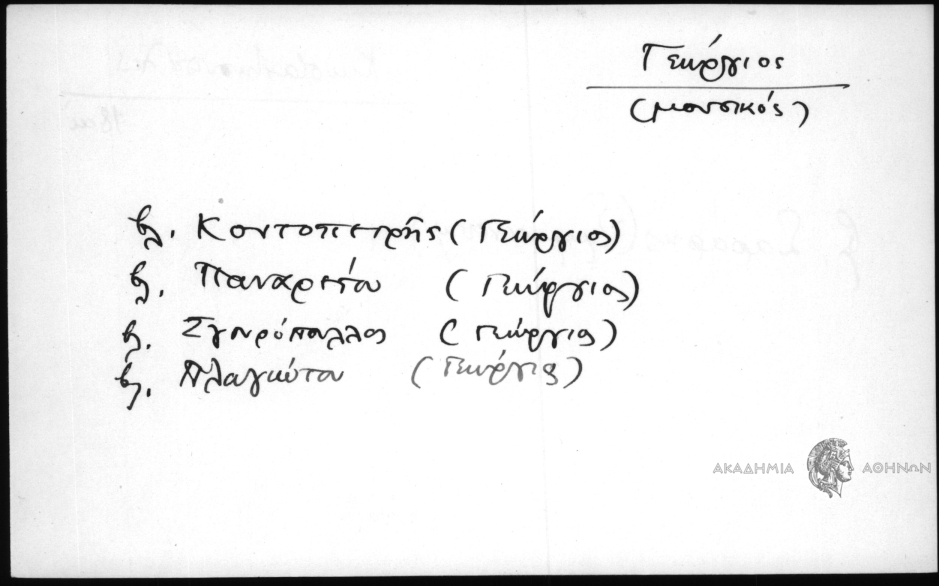 Γεώργιος
(μουσικός)
βλ. Κοντοπετρῆς (Γεώργιος)
βλ. Παναρέτου (Γεώργιος)
βλ. Σγουρόπουλλος (Γεώργιος)
βλ. (Γεώργιος)
ΑΚΑΔΗΜΙΑ ΑΘΗΝΩΝ